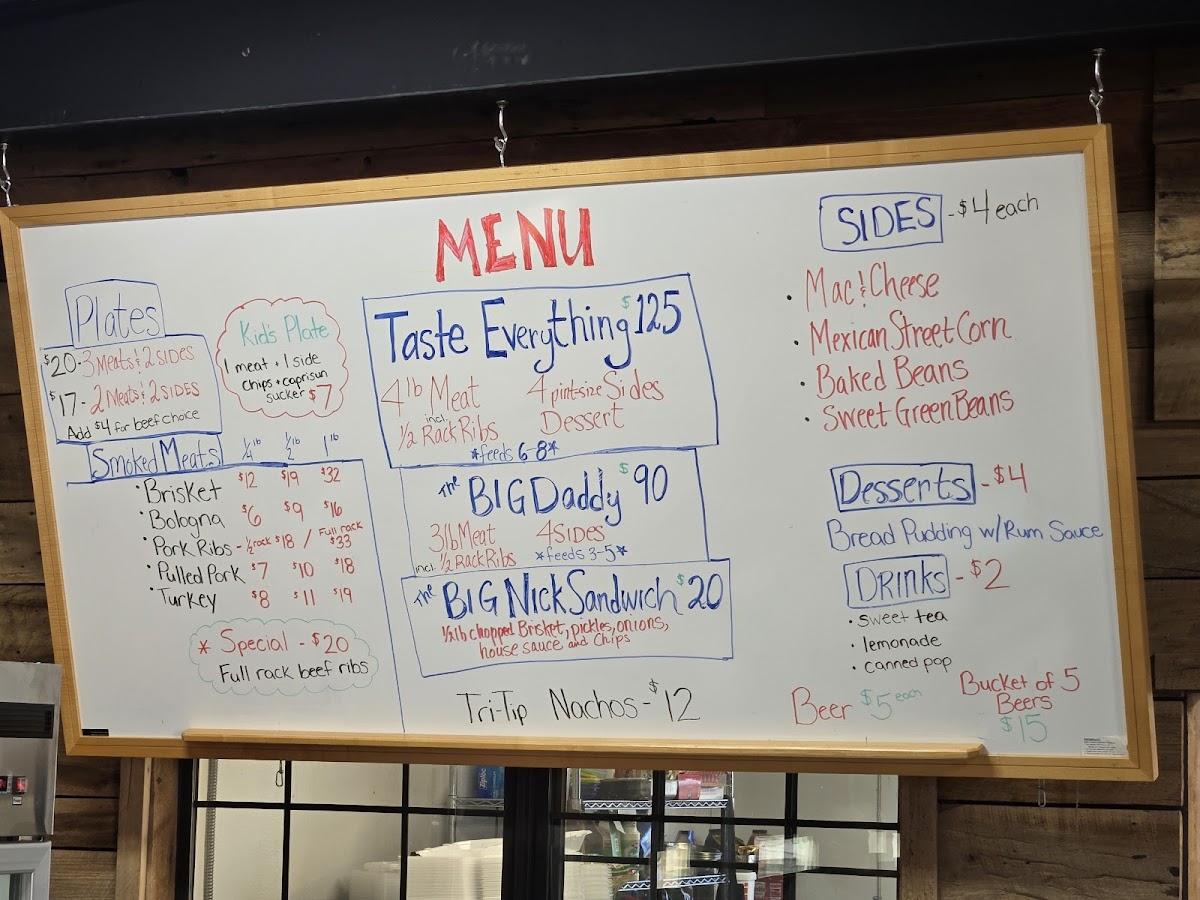 MENU
Plates
$20-3 Meats & 2 SIDES
$17-2 Meats & 2 SIDES
Add $4 for beef choice
Kid's Plate
1 meat + 1 side
chips + caprisun
sucker $7
Smoked Meats 1/4 lb 1/2 lb 1 lb
• Brisket $12 $19 $32
• Bologna $6 $9 $16
• Pork Ribs - 1/2 rack $18 / Full rack $33
• Pulled Pork $7 $10 $18
• Turkey $8 $11 $19
* Special - $20
Full rack beef ribs
Taste Everything $125
4 lb Meat
incl.
1/2 Rack Ribs
4 pint-size Sides
Dessert
*feeds 6-8*
The BIG Daddy $90
3lb Meat 4 SIDES
incl. 1/2 Rack Ribs *feeds 3-5*
The BIG Nick Sandwich $20
1/2 lb chopped Brisket, pickles, onions,
house sauce and chips
Tri-Tip Nachos - $12
SIDES - $4 each
• Mac & Cheese
• Mexican Street Corn
• Baked Beans
• Sweet Green Beans
Desserts - $4
Bread Pudding w/Rum Sauce
DRINKS - $2
• sweet tea
• lemonade
• canned pop
Beer $5 each
Bucket of 5
Beers
$15